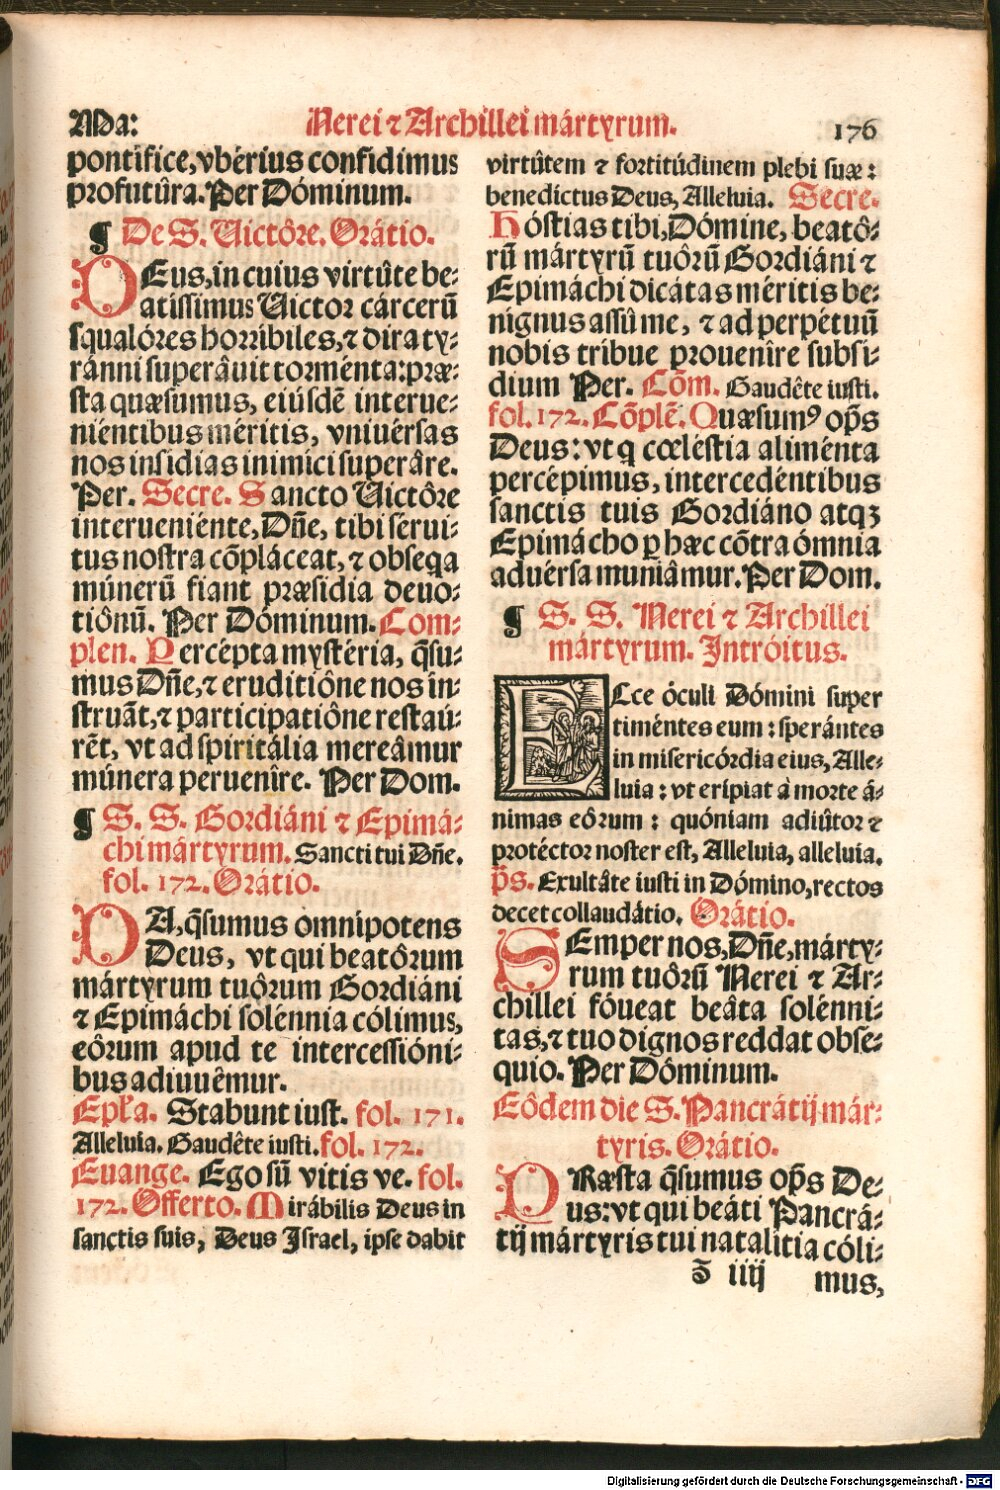 Ma:
Nerei ⁊ Archillei mártyrum.
176
pontífice, vbérius confidimus
profutûra. Per Dóminum.
¶ De S. Uictôre. Orátio.
DEus, in cuius virtûte be-
atíssimus Uictor cárcerũ
squalóres horribiles, ⁊ dira ty-
ránni superâuit torménta: præ-
sta quæsumus, eiúsdẽ interue-
niéntibus méritis, vniuérsas
nos insídias inimíci superâre.
Per. Secre. Sancto Uictôre
interueniénte, Dñe, tibi serui-
tus nostra cõpláceat, ⁊ obseqa
múnerũ fiant præsídia deuo-
tiônũ. Per Dóminum. Com-
plen. Percépta mystéria, q̃su-
mus Dñe, ⁊ eruditiône nos in-
struãt, ⁊ participatiône restaú-
rẽt, vt ad spiritália mereâmur
múnera peruenîre. Per Dom.
¶ S. S. Gordiáni ⁊ Epimá-
chi mártyrum. Sancti tui Dñe.
fol. 172. Orátio.
DA, q̃sumus omnípotens
Deus, vt qui beatôrum
mártyrum tuôrum Gordiáni
⁊ Epimáchi solénnia cólimus,
eôrum apud te intercessióni-
bus adiuuêmur.
Epl̃a. Stabunt iust. fol. 171.
Alleluia. Gaudête iusti. fol. 172.
Euange. Ego sũ vitis ve. fol.
172. Offerto. Mirábilis Deus in
sanctis suis, Deus Israel, ipse dabit
virtûtem ⁊ fortitúdinem plebi suæ:
benedictus Deus, Alleluia. Secre.
Hóstias tibi, Dómine, beatô-
rũ mártyrũ tuôrũ Gordiáni ⁊
Epimáchi dicátas méritis be-
nignus assûme, ⁊ ad perpétuũ
nobis tribue prouenîre subsí-
dium Per. Cõm. Gaudête iusti.
fol. 172. Cõplẽ. Quæsumꝰ op̃s
Deus: vt q cœléstia aliménta
percépimus, intercedéntibus
sanctis tuis Gordiáno atqꝫ
Epimácho ꝑ hæc cõtra ómnia
aduérsa muniâmur. Per Dom.
¶ S. S. Nerei ⁊ Archillei
mártyrum. Intróitus.
ECce óculi Dómini super
timéntes eum: sperántes
in misericórdia eius, Alle-
luia: vt erípiat à morte á-
nimas eôrum: quóniam adiûtor ⁊
protéctor noster est, Alleluia, alleluia.
p̃s. Exultâte iusti in Dómino, rectos
decet collaudátio. Orátio.
SEmper nos, Dñe, márty-
rum tuôrũ Nerei ⁊ Ar-
chillei fóueat beâta solénni-
tas, ⁊ tuo dignos reddat obse-
quio. Per Dôminum.
Eôdem die S. Pancrátij már-
tyris. Orátio.
PRæsta q̃sumus op̃s De-
us: vt qui beáti Pancrá-
tij mártyris tui natalítia cóli-
ꝺ̃ iiij mus,
Digitalisierung gefördert durch die Deutsche Forschungsgemeinschaft - DFG